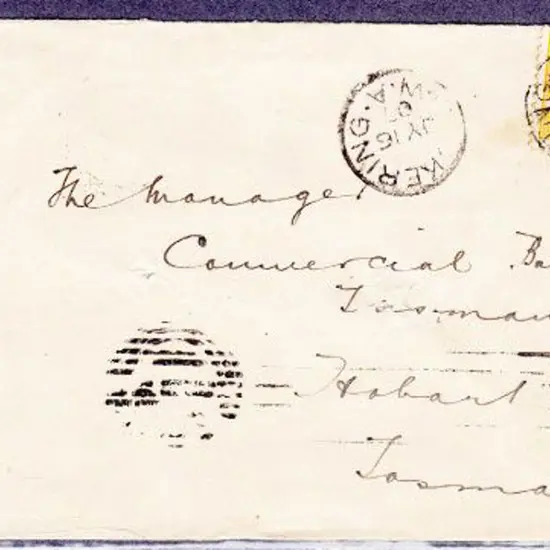 KERING. W.A
JY 16
07
The Manager
Commercial Ba
Tasman
Hobart
Tasma